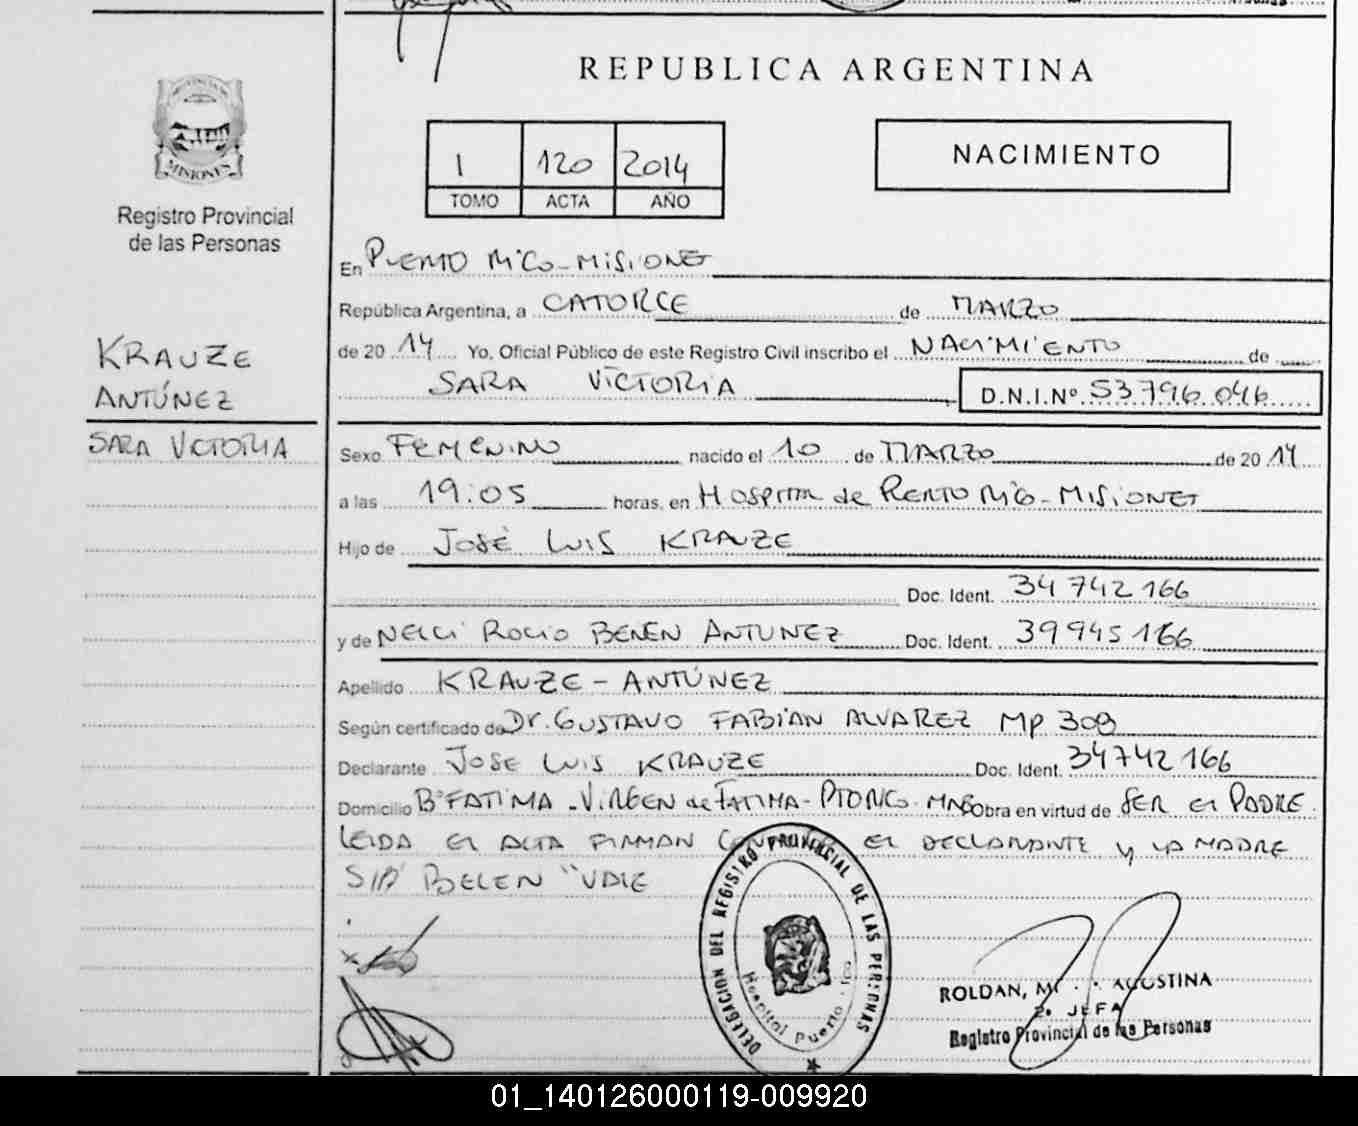 REPUBLICA ARGENTINA
MISIONES
Registro Provincial
de las Personas
1 120 2014
TOMO ACTA AÑO
NACIMIENTO
En PUERTO RICO - MISIONES
República Argentina, a CATORCE de MARZO
de 20 14 Yo, Oficial Público de este Registro Civil inscribo el NACIMIENTO de
SARA VICTORIA D.N.I.Nº 53796046
KRAUZE
ANTÚNEZ
SARA VICTORIA
Sexo FEMENINO nacido el 10 de MARZO de 20 14
a las 19:05 horas, en HOSPITAL de PUERTO RICO - MISIONES
Hijo de JOSÉ LUIS KRAUZE
Doc. Ident. 34742166
y de NELCI ROCIO BELEN ANTUNEZ Doc. Ident. 39945166
Apellido KRAUZE - ANTÚNEZ
Según certificado de Dr. GUSTAVO FABIAN ALVAREZ MP 309
Declarante JOSE LUIS KRAUZE Doc. Ident. 34742166
Domicilio Bº FATIMA - VIRGEN de FATIMA - Obra en virtud de SER EL PADRE
LEIDA EL ACTA FIRMAN EL DECLARANTE y LA MADRE
BELEN "VALE
DELEGACION DEL REGISTRO PROVINCIAL DE LAS PERSONAS
Hospital Puerto
ROLDAN, AGOSTINA
2º JEFA
Registro Provincial de las Personas
01_140126000119-009920